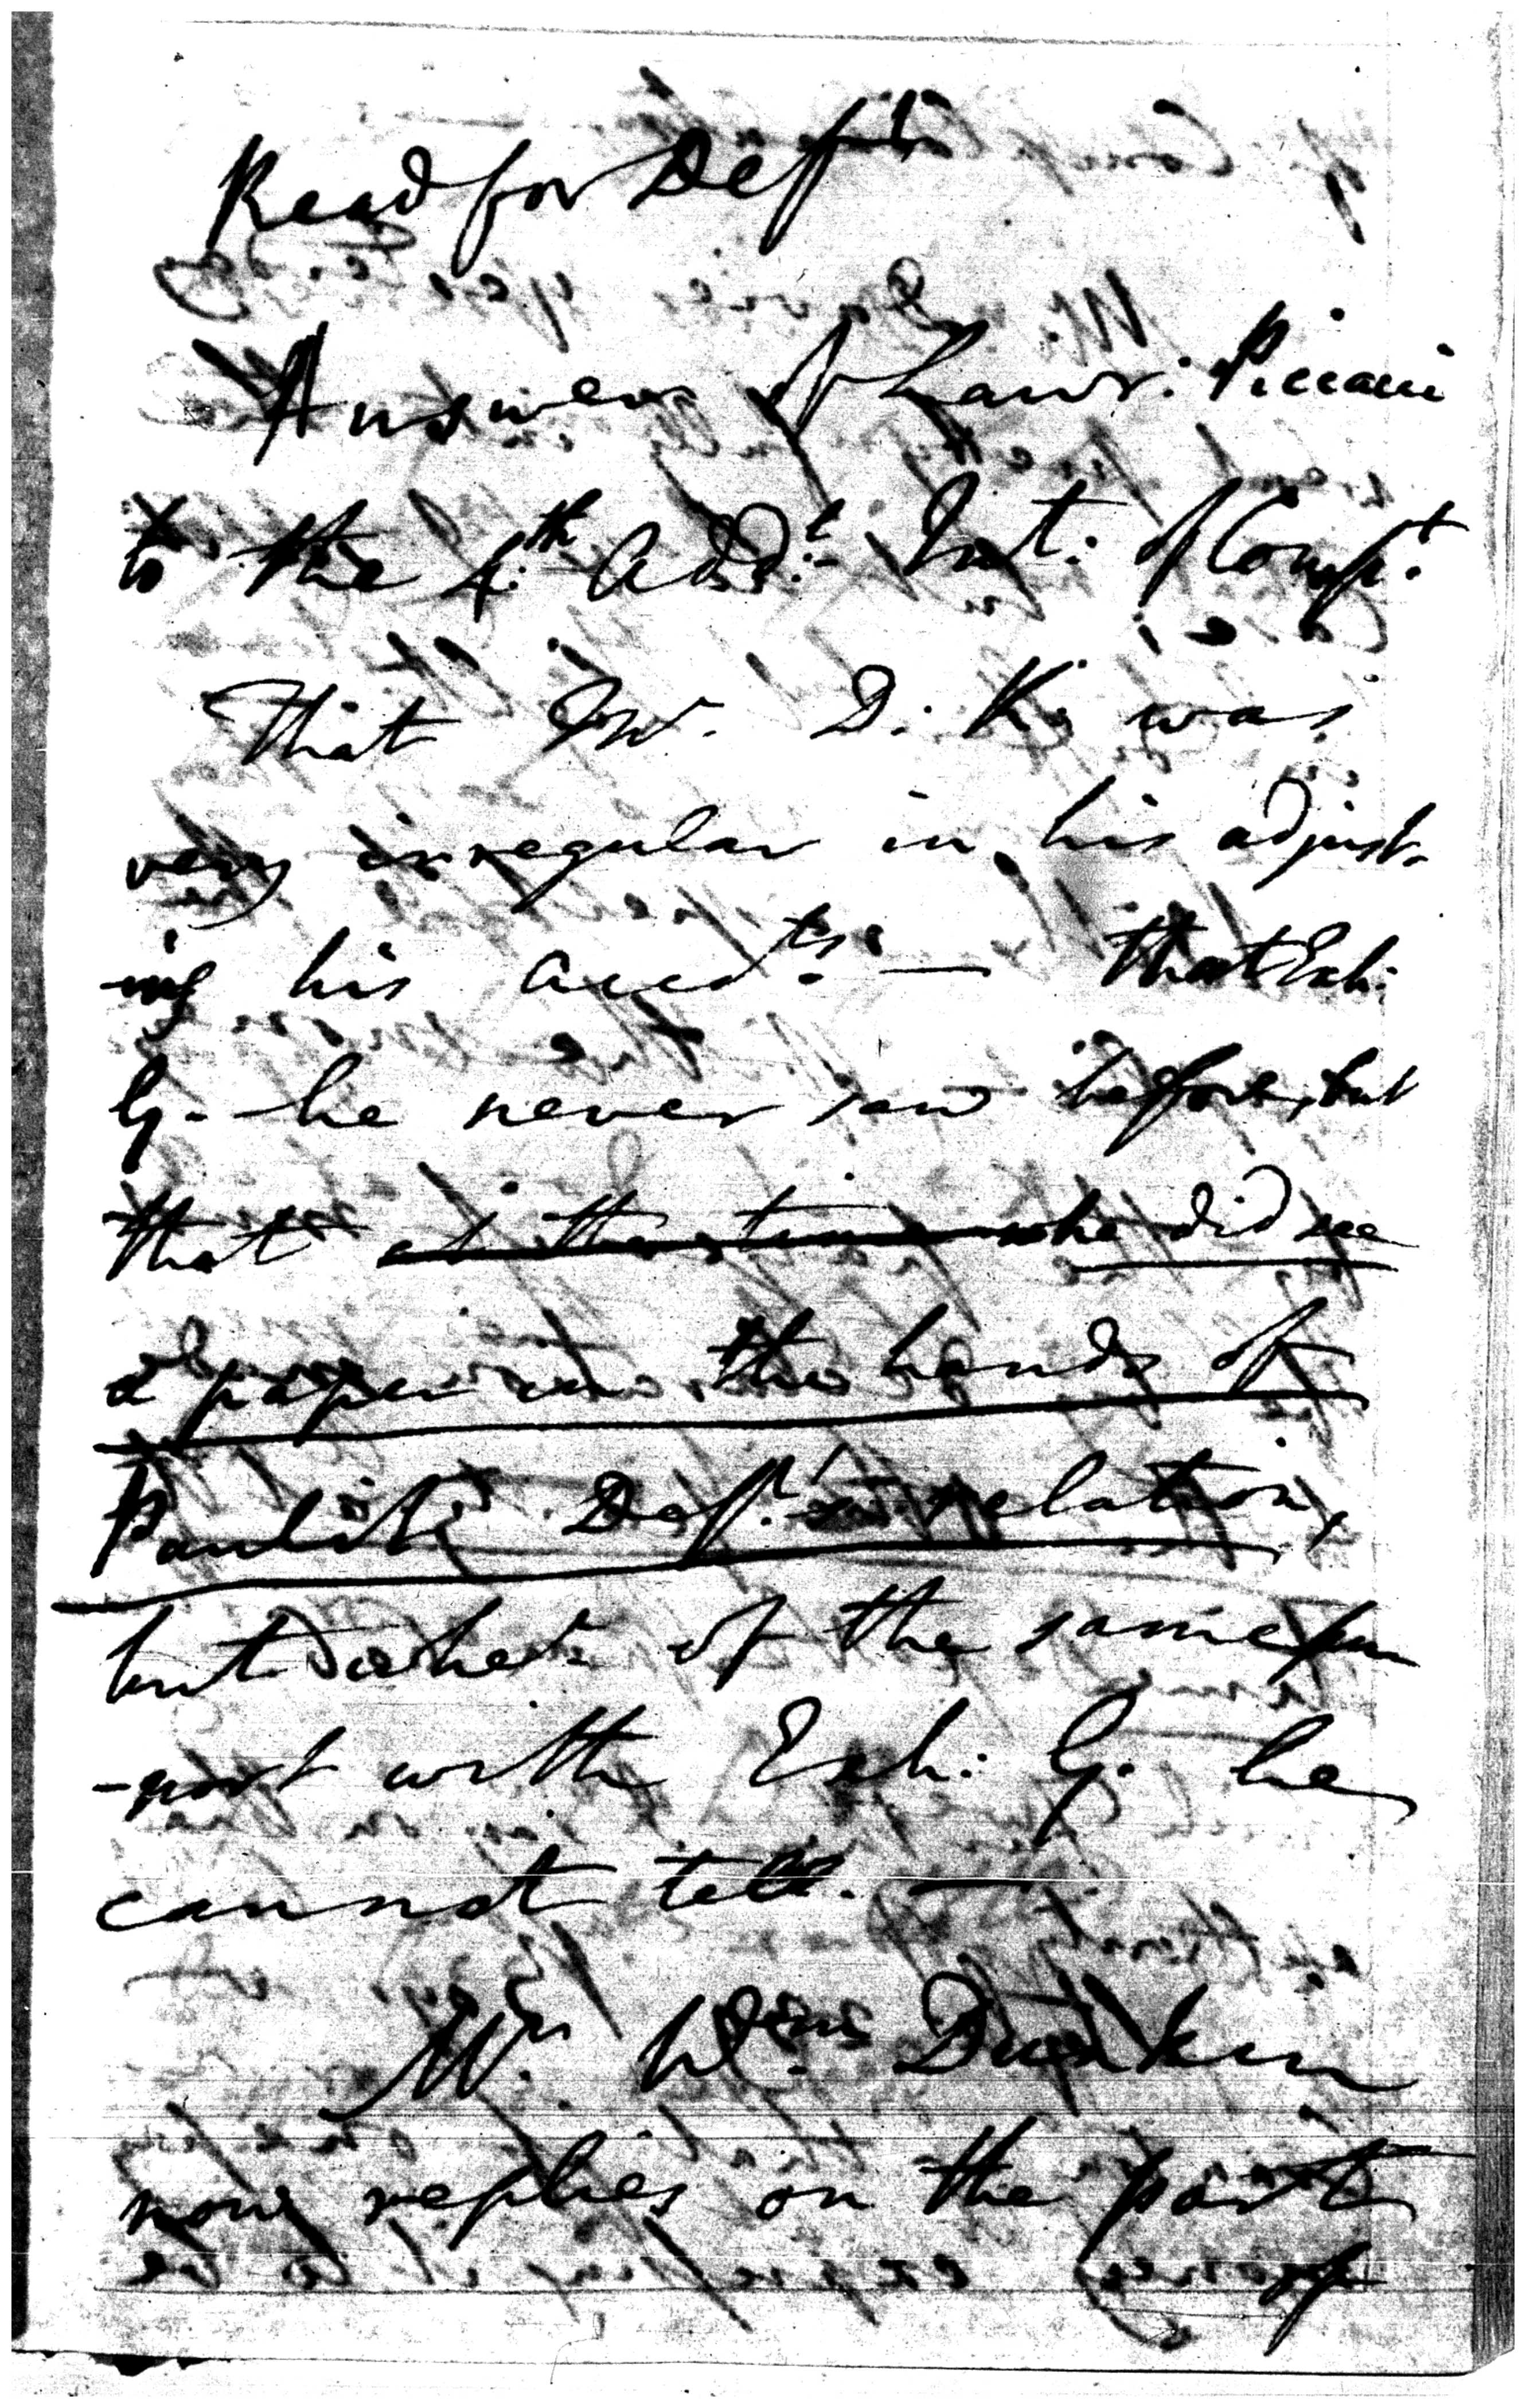 Read for Deft
Answer of Lawr: Piccani
to the 4th Addt. Int: of Compt.
That Mr. D. K. was
very irregular in his adjust-
ing his accots: — that Exh:
G. he never saw before, but
that at the time he did see
a paper in the hands of
Deft. relation,
but wher. of the same pur
-port with Exh: G. he
cannot tell. —
Mr. Wm. Dunkin
now replies on the part
of